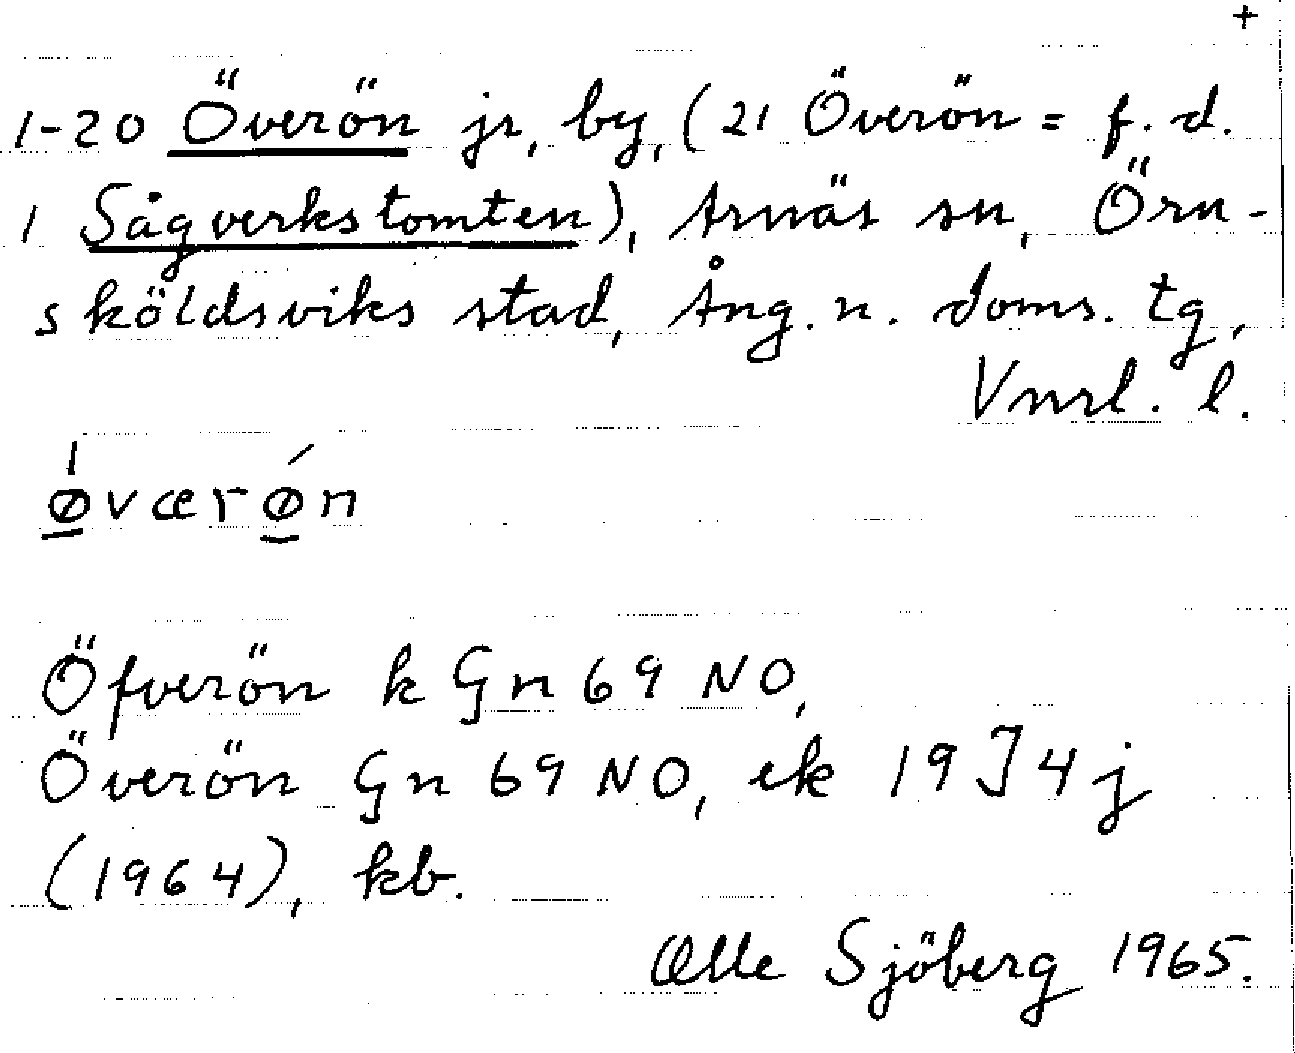 +
1-20 Överön jr, by, (21 Överön = f.d.
1 Sågverkstomten), Arnäs sn, Örn-
sköldsviks stad, Ång. n. doms. tg,
Vnrl. l.
ǿ̲værǿ̲n
Öfverön k Gn 69 NO,
Överön Gn 69 NO, ek 19 J 4 j
(1964), kb.
Olle Sjöberg 1965.